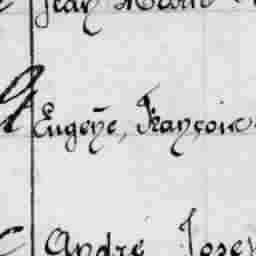 Jean
Eugène, François
André Josep